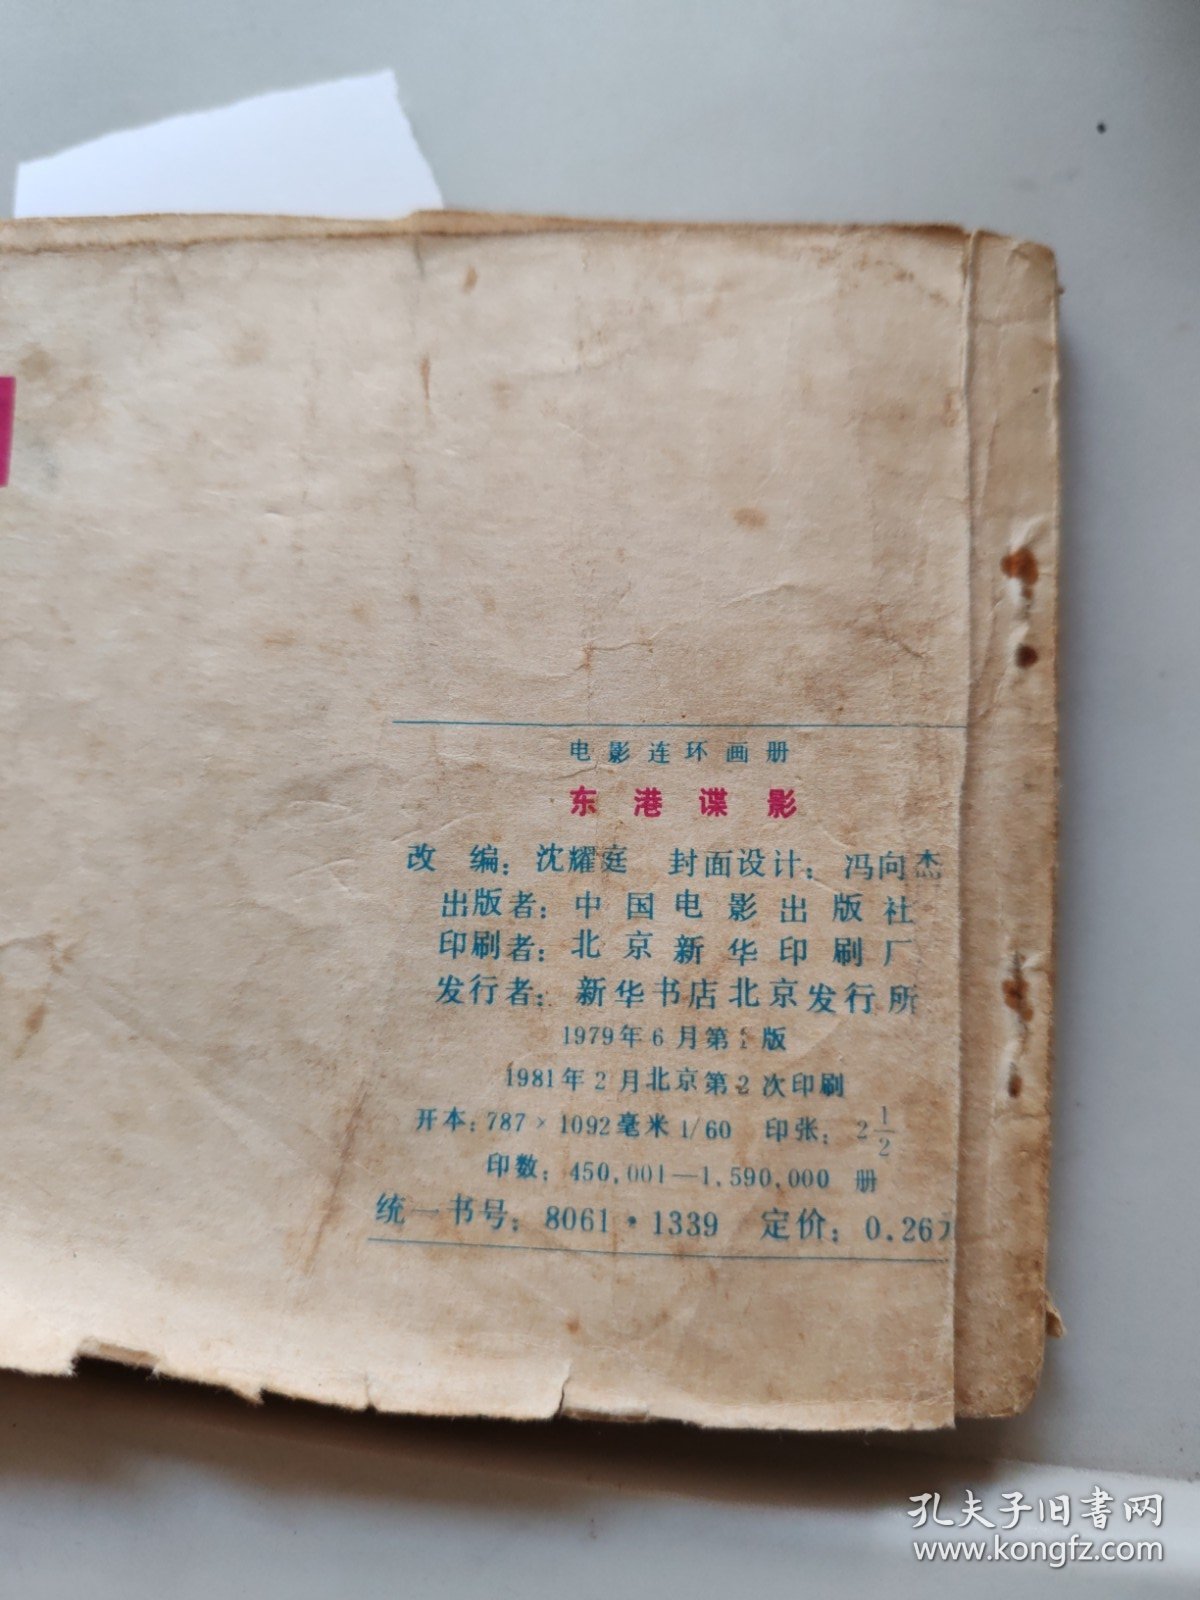 电影连环画册
东港谍影
改 编：沈耀庭 封面设计：冯向杰
出版者：中国电影出版社
印刷者：北京新华印刷厂
发行者：新华书店北京发行所
1979年6月第1版
1981年2月北京第2次印刷
开本：787×1092毫米1/60 印张：2 1/2
印数：450,001—1,590,000 册
统一书号：8061·1339 定价：0.26元
孔夫子旧书网
www.kongfz.com